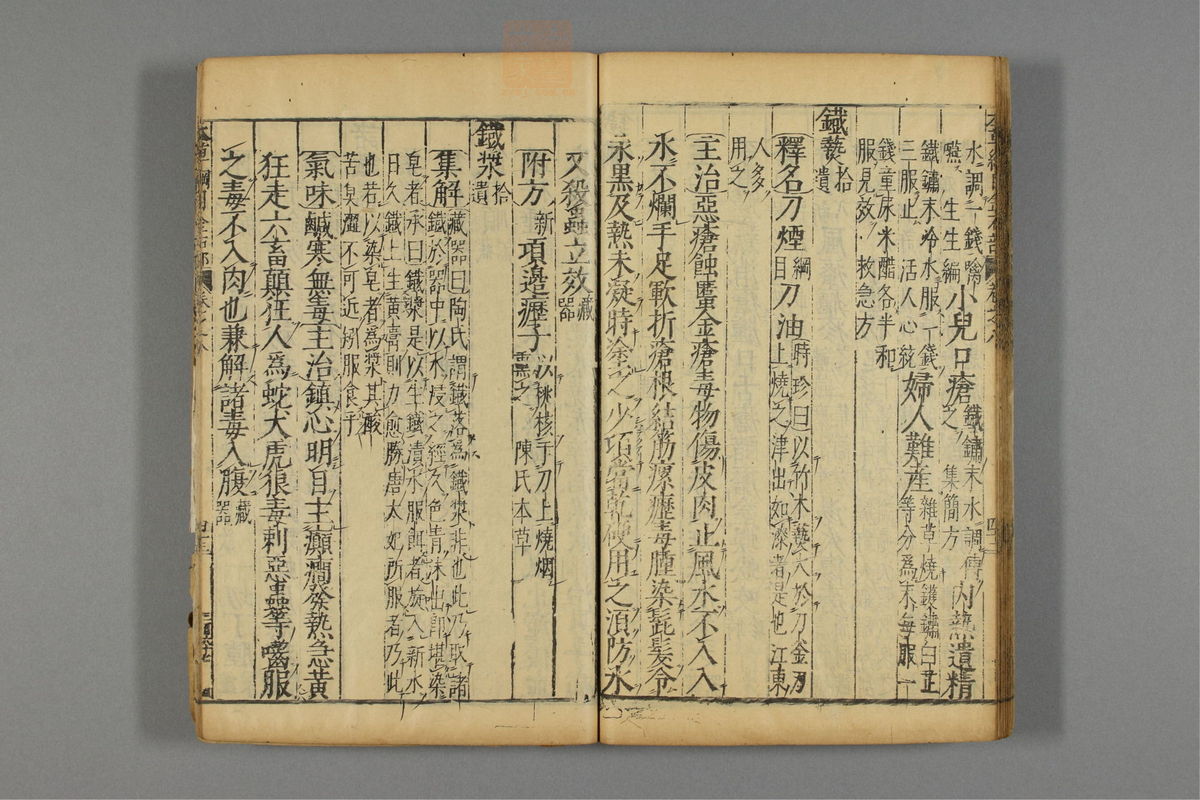 水調一錢噙
嚥 生生編
小兒口瘡
鐵鏽末水調傅
之 集簡方
內熱遺精
鐵鏽末冷水服一錢
三服止 活人心統
婦人難產
雜草燒鑊鏽白芷
等分爲末每服一
錢童尿米醋各半和
服見效 救急方
鐵爇 拾遺
釋名刀煙 綱目 刀油
時珍曰以竹木爇火於刀金刃
上燒之津出如漆者是也江東
人多
用之
主治惡瘡蝕䘌金瘡毒物傷皮肉止風水不入入
水不爛手足皸折瘡根結筋瘰癧毒腫染髭髮令
永黑及熱未凝時塗之少頃當乾硬用之須防水
又殺蟲立效 藏器
附方 新 項邊癧子
以桃核于刀上燒烟
熏之 陳氏本草
鐵漿 拾遺
集解
藏器曰陶氏謂鐵落爲鐵漿非也此乃取諸
鐵於器中以水浸之經久色青沫出即堪染
皂者承曰鐵漿是以生鐵漬水服餌者旋入新水
日久鐵上生黃膏則力愈勝唐太妃所服者乃此
也若以染皂者爲漿其酸
苦臭澀不可近矧服食乎
氣味鹹寒無毒主治鎮心明目主癲癎發熱急黃
狂走六畜顛狂人爲蛇犬虎狼毒刺惡蟲等囓服
之毒不入肉也兼解諸毒入腹 藏器